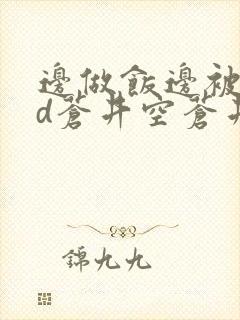 邊做飯邊被
d蒼井空蒼井
錦九九